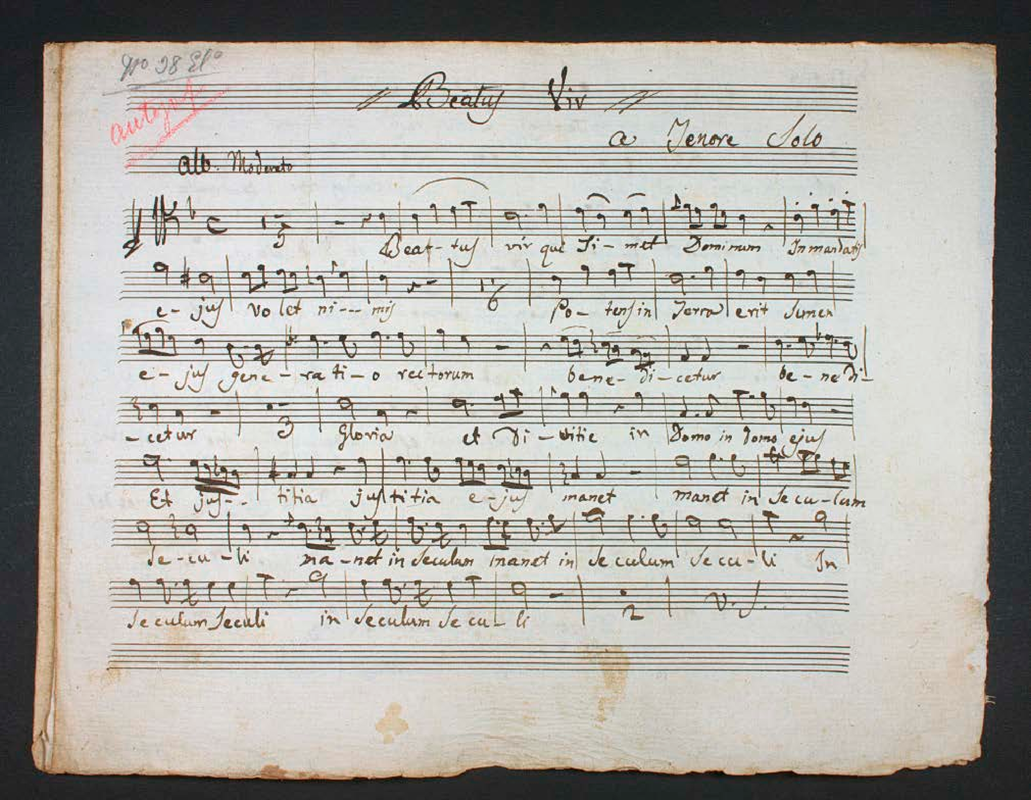 No 98 El
autogr.
Beatus Vir
a Tenore Solo
All: Moderato
Beat-tus vir qui Ti-met Dominum In mandatis
e-jus volet ni--mis Po-tens in Terra erit Semen
e-jus gene-rati-o rectorum bene-di-cetur be-nedi-
-cetur Gloria et Di-vitie in Domo in Domo ejus
Et jus-- titia justitia e-jus manet manet in Seculum
Se-cu-li ma-net in Seculum manet in Seculum Secu-li In
Seculum Seculi in Seculum Secu-li
V. S.